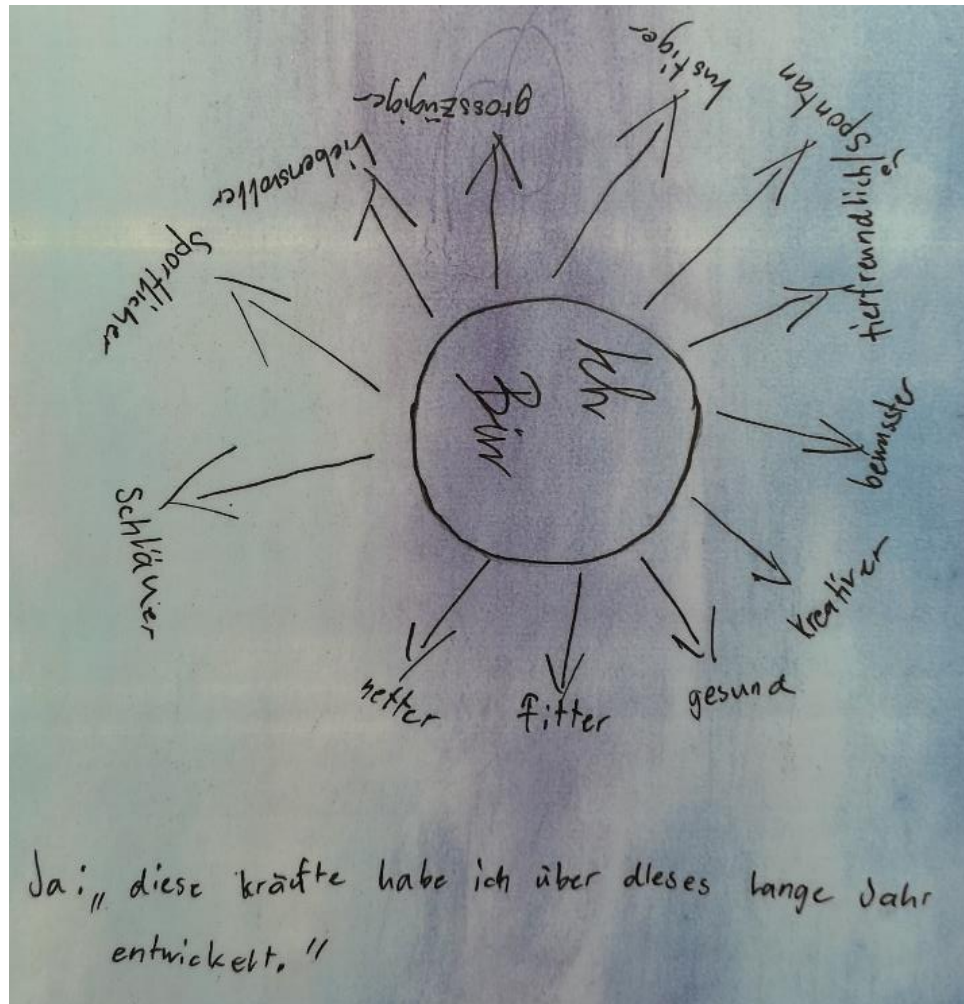 Ich
Bin
lustiger
Spontan
tierfreundlich/er
bewusster
kreativer
gesund
fitter
netter
Schläuer
Sportlicher
Liebensvoller
grosszügiger
Ja: „diese kräfte habe ich über dieses lange Jahr
entwickelt."